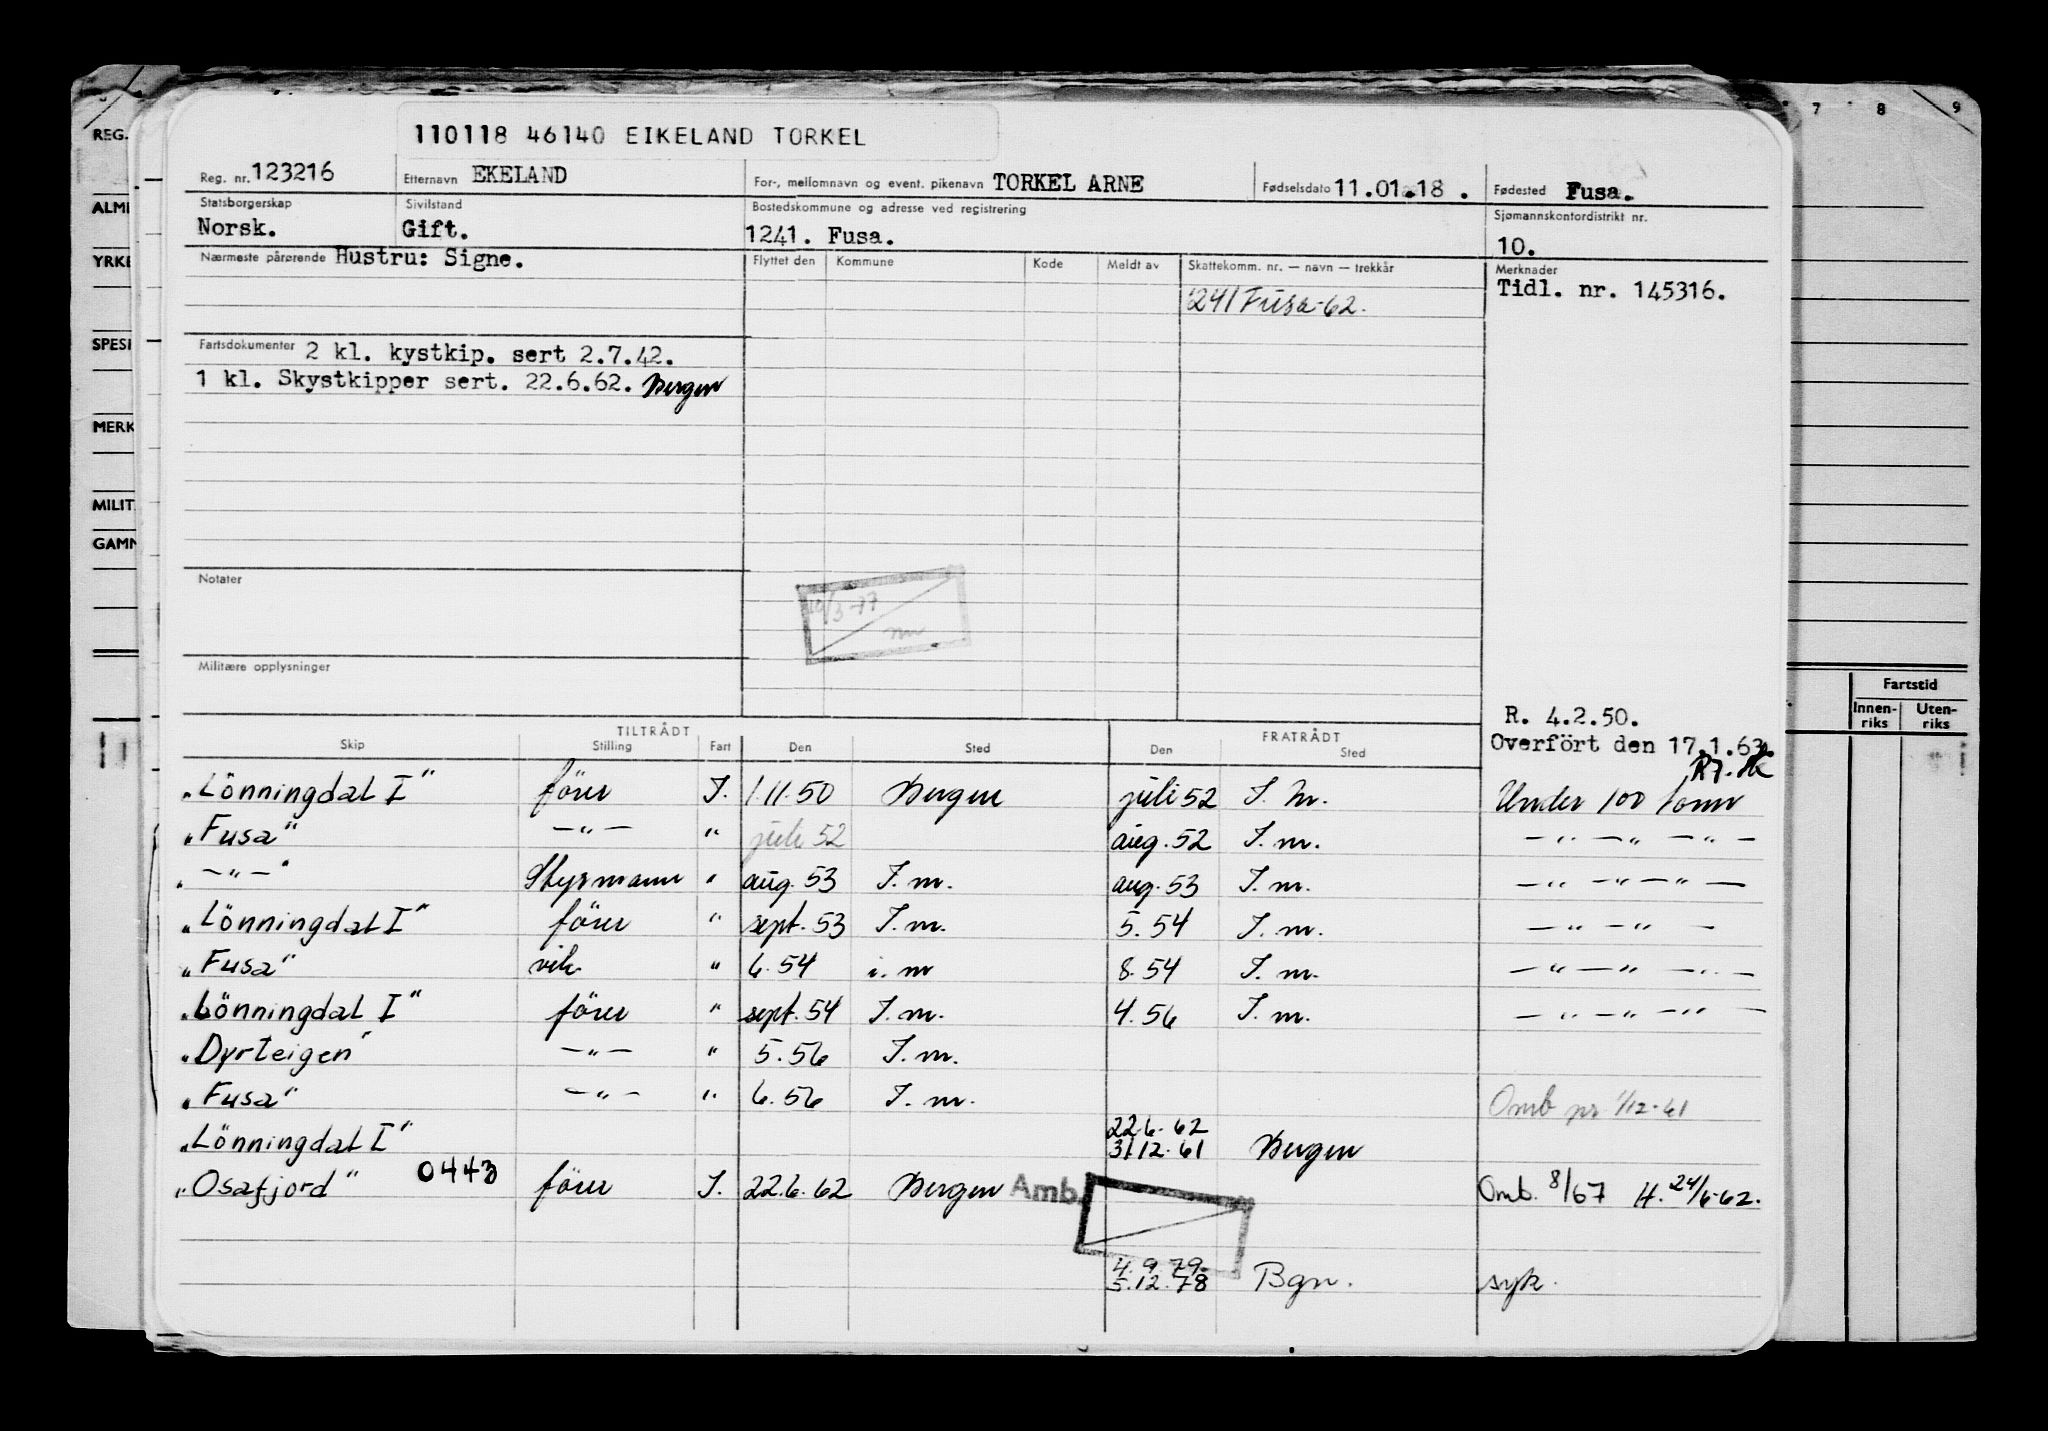 7 8 9
REG.
110118 46140 EIKELAND TORKEL
Reg. nr. 123216 Etternavn EKELAND For-, mellomnavn og event. pikenavn TORKEL ARNE Fødselsdato 11.01.18 . Fødested Fusa.
Statsborgerskap Sivilstand Bostedskommune og adresse ved registrering Sjømannskontordistrikt nr.
ALM
Norsk. Gift. 1241. Fusa. 10.
YRKE
Nærmeste pårørende Hustru: Signe. Flyttet den Kommune Kode Meldt av Skattekomm. nr. — navn — trekkår Merknader
1241 Fusa-62. Tidl. nr. 145316.
SPESI
Fartsdokumenter 2 kl. kystkip. sert 2.7.42.
1 kl. Skystkipper sert. 22.6.62. Bergen
MERK
MILIT
GAMM
Notater
/3-77
Militære opplysninger
Fartstid
Innen-riks Uten-riks
R. 4.2.50.
Overfört den 17.1.63.
TILTRÅDT FRATRÅDT
Skip Stilling Fart Den Sted Den Sted
"Lönningdal I" förer I. 1.11.50 Bergen juli 52 I. m. Under 100 tonn
"Fusa" —"— " juli 52 aug. 52 I. m. —"—"—"—
"—"—" Styrmann " aug. 53 I. m. aug. 53 I. m. —"—"—"—
"Lönningdal I" förer " sept. 53 I. m. 5. 54 I. m. —"—"—
"Fusa" vik. " 6. 54 i. m 8. 54 I. m. —"—"—"—
"Lönningdal I" förer " sept. 54 I. m. 4. 56 I. m. —"—"—"—
"Dyrteigen" —"— " 5. 56 I. m.
"Fusa" —"— " 6. 56 I. m. Omb pr 1/12-61
22.6. 62
"Lönningdal I" 31.12.61 Bergen
"Osafjord" 0443 förer I. 22.6.62 Bergen Amb. Omb. 8/67 H. 24/6-62.
4. 9. 79.
5.12.78 Bgn. syk.